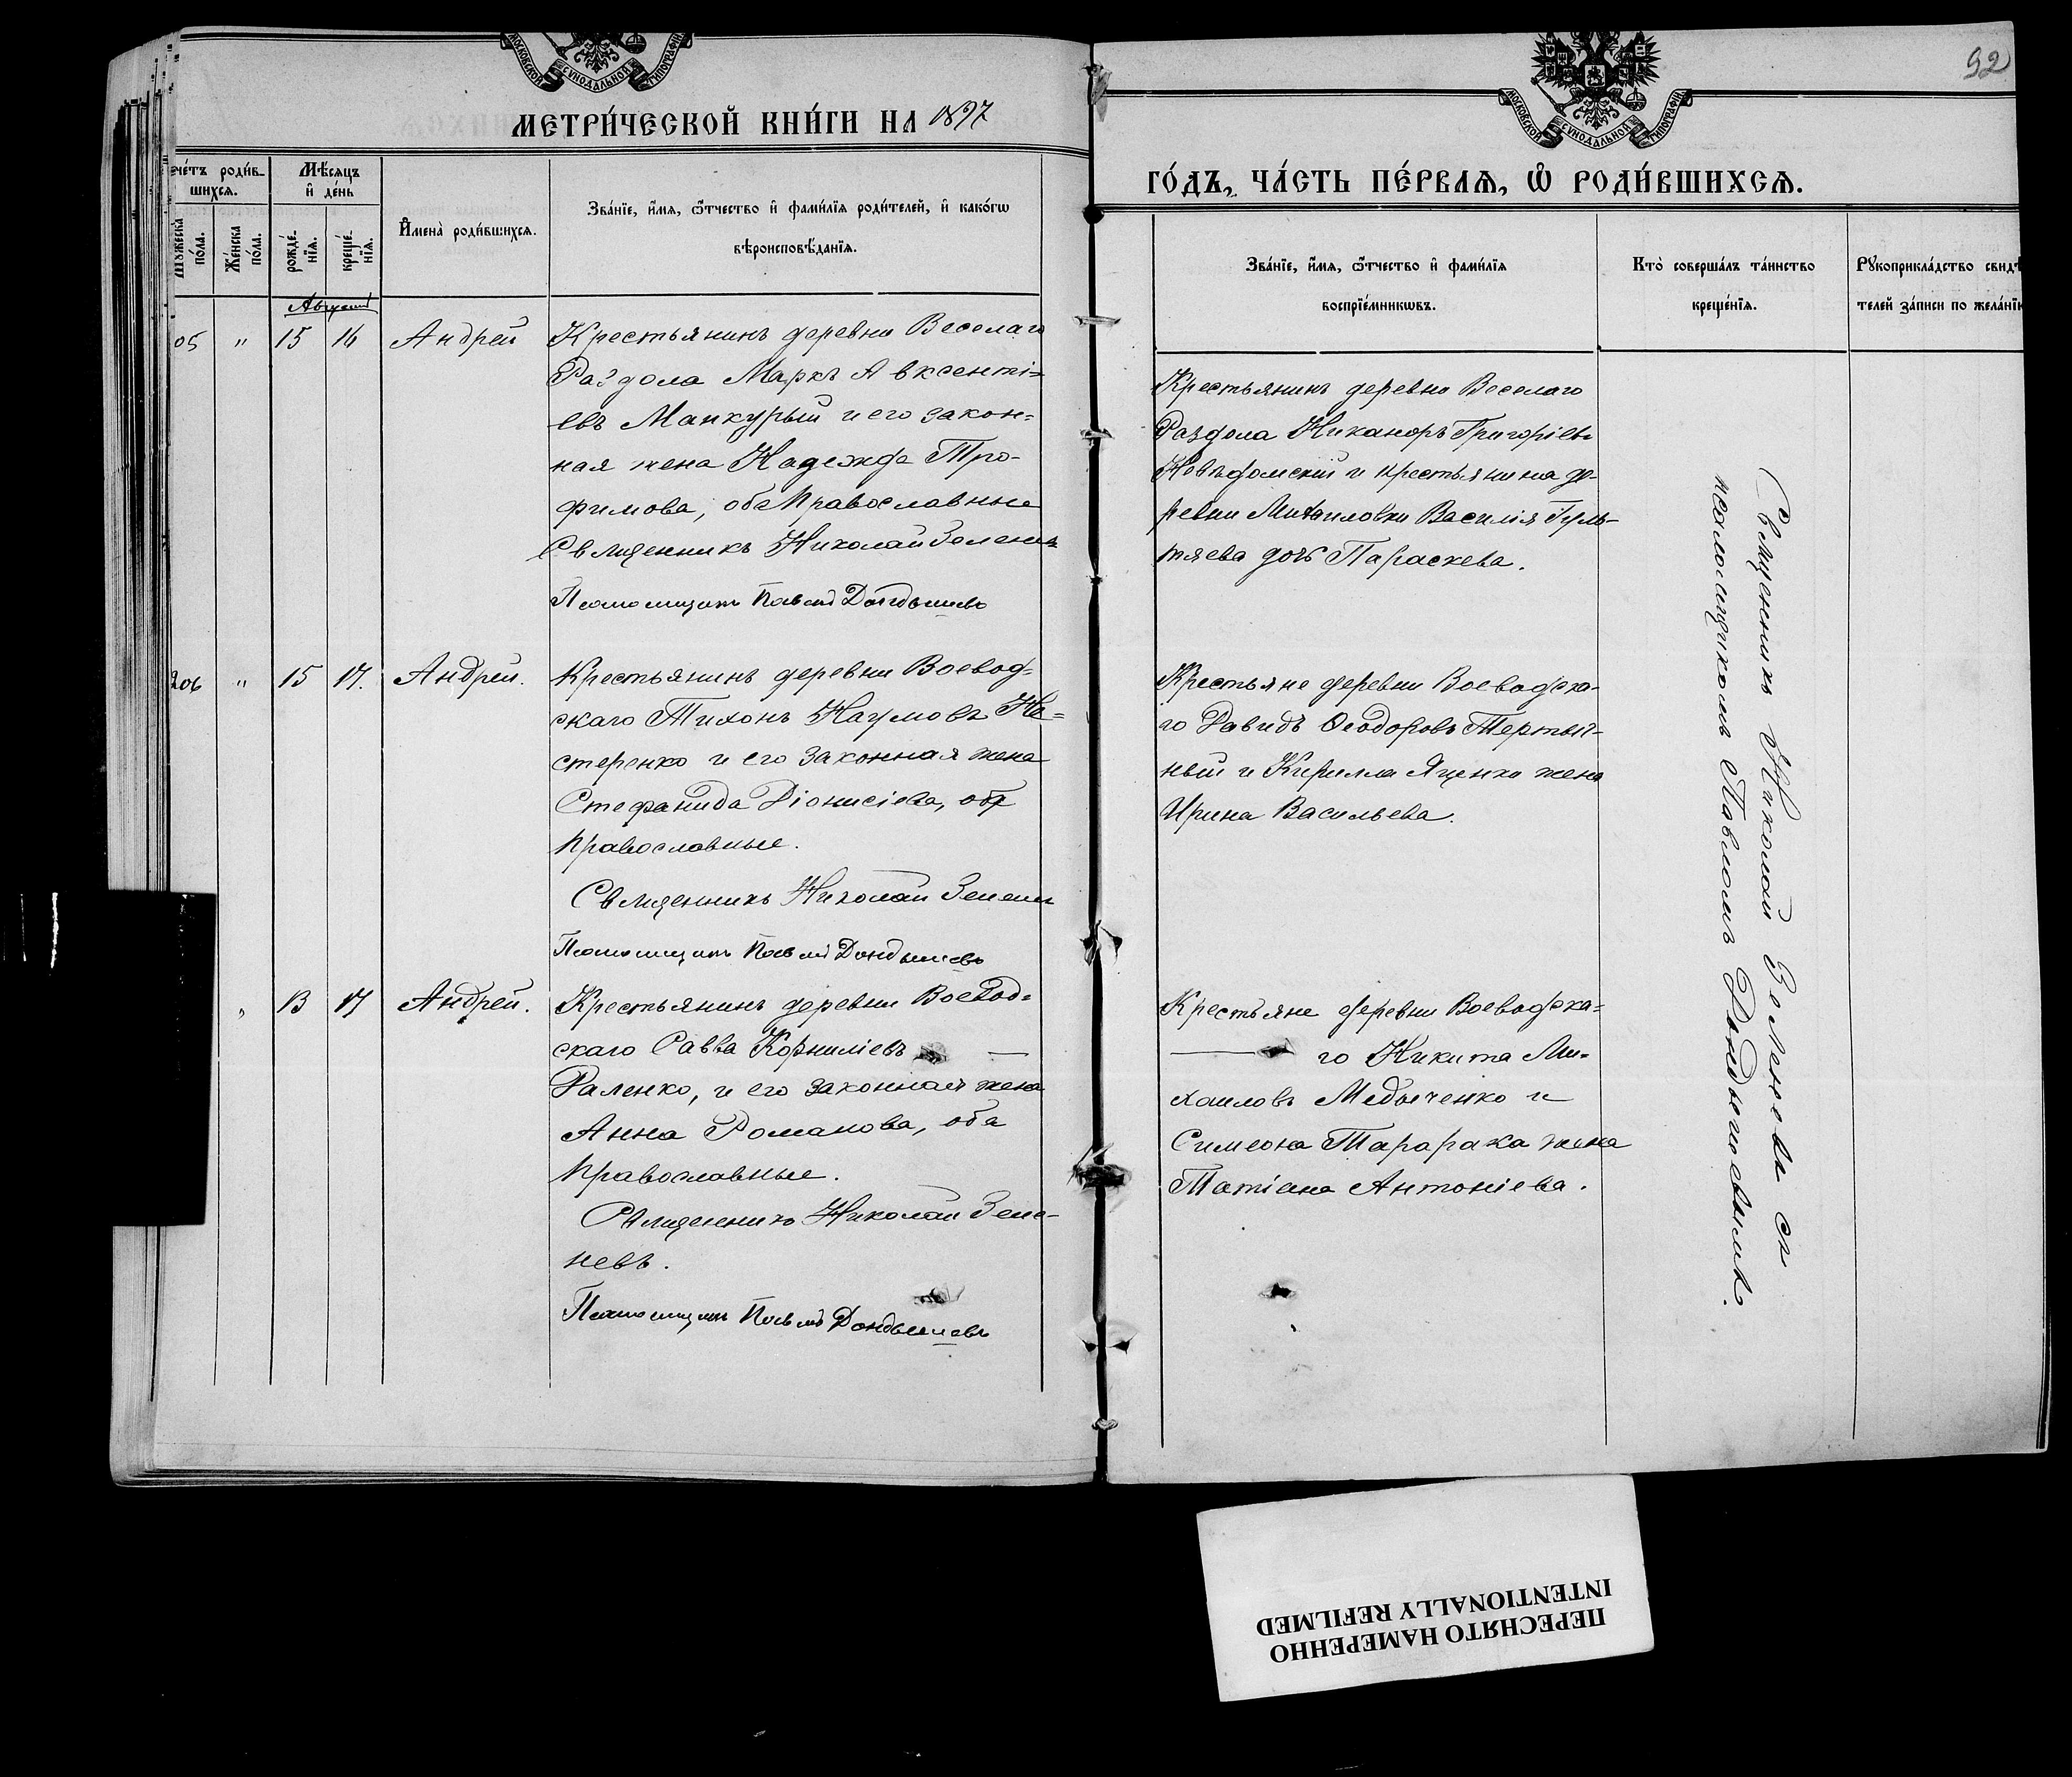 МОСКОВСКОЙ СѴНОДАЛЬНОЙ ТИПОГРАФІИ
МЕТРИ́ЧЕСКОЙ КНИ́ГИ НА 1897
счéтъ роди́в-
шихся.
Мѣ́сяцъ
и҆ дéнь
Мꙋ́жеска
пóла.
Жéнска
пóла.
рождé-
нїя.
крещé-
нїя.
И҆менà роди́вшихся.
Звáнїе, и҆́мя, ѻ҆́тчество и҆ фами́лїя роди́телей, и҆ какóгѡ
вѣроисповѣ́данїя.
Августъ
05 " 15 16 Андрей
Крестьянинъ деревни Веселаго
Раздола Маркъ Авксенті=
евъ Манкурый и его закон=
ная жена Надежда Тро-
фимова, оба православные
Священникъ Николай Зеленевъ
Псаломщикъ Павелъ Дондышевъ
206 " 15 17. Андрей.
Крестьянинъ деревни Воевод=
скаго Тихонъ Наумовъ Не=
стеренко и его законная жена
Стефанида Діонисіева, оба
православные.
Священникъ Николай Зеленевъ
Псаломщикъ Павелъ Дондышевъ
" 13 17 Андрей.
Крестьянинъ деревни Воевод=
скаго Савва Корниліевъ —
Галенко, и его законная жена
Анна Романова, оба
православные.
Священникъ Николай Зеле-
невъ.
Псаломщикъ Павелъ Дондышевъ
92
МОСКОВСКОЙ СѴНОДАЛЬНОЙ ТИПОГРАФІИ
ГÓДЪ, ЧÁСТЬ ПÉРВАѦ, Ѽ РОДИ́ВШИХСѦ.
Звáнїе, и҆́мя, ѻ҆́тчество и҆ фами́лїя
воспрїéмникѡвъ.
Ктò совершáлъ тáинство
крещéнїя.
Рꙋкоприклáдство свидѣ́
телей зáписи по желáнїю
Крестьянинъ деревни Веселаго
Раздола Никаноръ Григоріевъ
и крестьянина де-
ревни Михаиловки Василія
дочь Параскева.
Крестьяне деревни Воеводска-
го Давидъ Ѳеодоровъ
и Кирилла Яценко жена
Ирина Васильева.
Крестьяне деревни Воеводска=
— го Никита Ми-
хаиловъ Медыченко и
Симеона Тарарака жена
Татіана Антоніева.
Священникъ Николай Зеленевъ съ
псаломщикомъ Павломъ Дондышевымъ.
ПЕРЕСНЯТО НАМЕРЕННО
INTENTIONALLY REFILMED